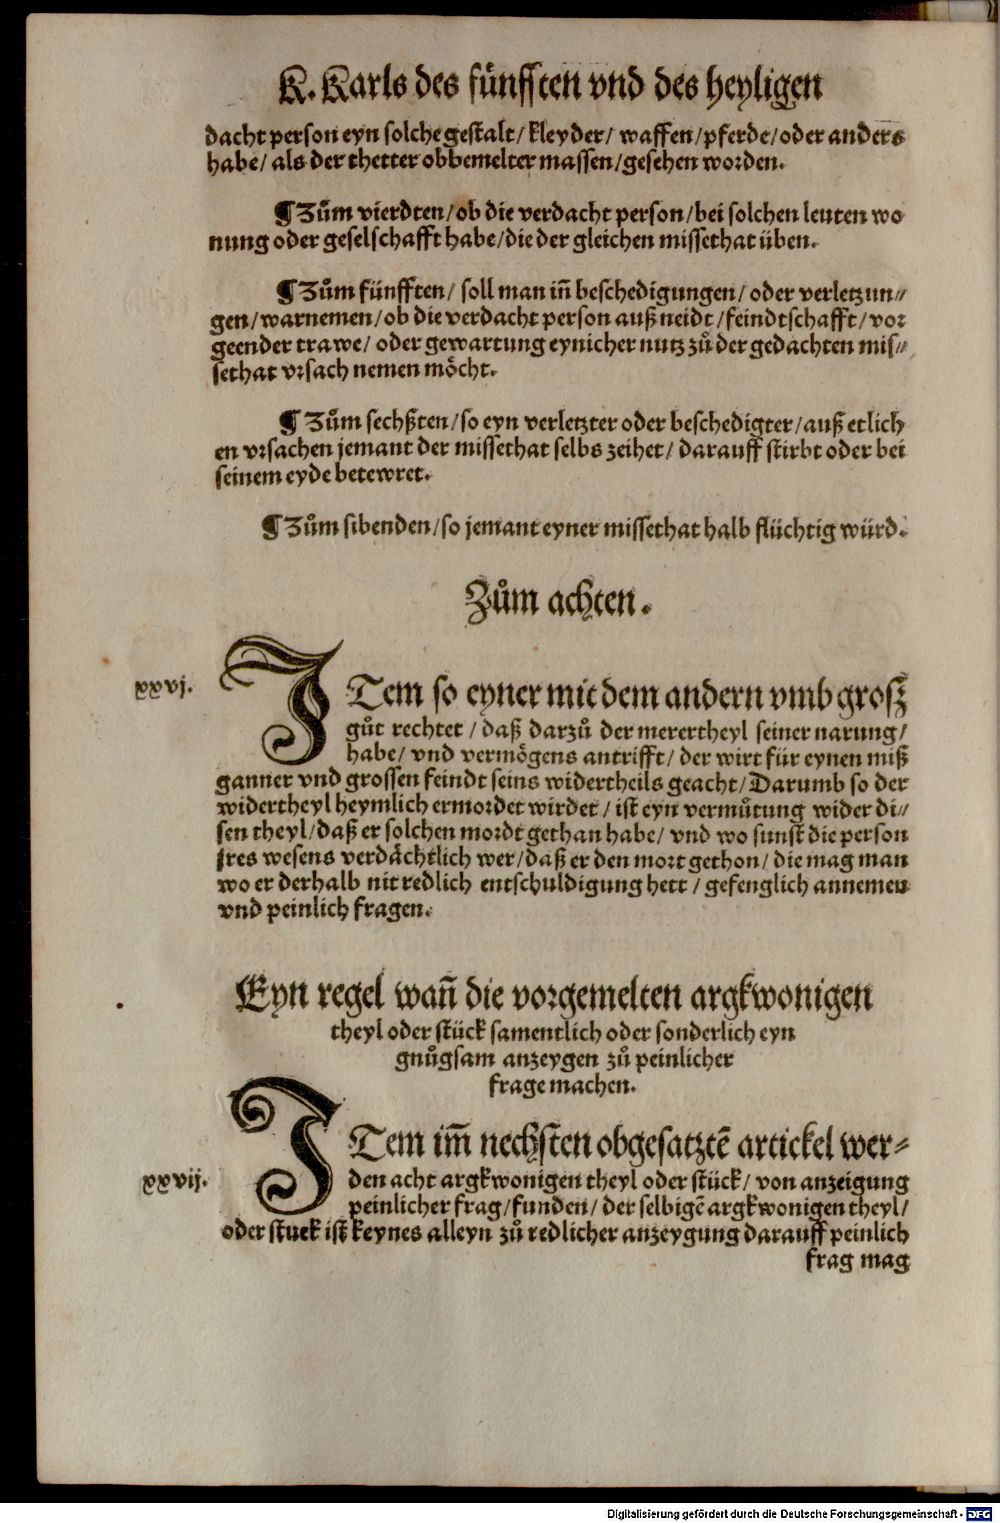 K. Karls des fünfften vnd des heyligen
dacht person eyn solche gestalt/ kleyder/ waffen/ pferde/ oder anders
habe/ als der thetter obbemelter massen/ gesehen worden.
¶ Zům vierdten/ ob die verdacht person/ bei solchen leuten wo
nung oder geselschafft habe/ die der gleichen missethat üben.
¶ Zům fünfften/ soll man iñ beschedigungen/ oder verletzun⸗
gen/ warnemen/ ob die verdacht person auß neidt/ feindtschafft/ vor
geender trawe/ oder gewartung eynicher nutz zů der gedachten mis⸗
sethat vrsach nemen möcht.
¶ Zům sechßten/ so eyn verletzter oder beschedigter/ auß etlich
en vrsachen jemant der missethat selbs zeihet/ darauff stirbt oder bei
seinem eyde betewret.
¶ Zům sibenden/ so jemant eyner missethat halb flüchtig würd.
Zům achten.
xxvj. ITem so eyner mit dem andern vmb grosz
gůt rechtet/ daß darzů der merertheyl seiner narung/
habe/ vnd vermögens antrifft/ der wirt für eynen miß
ganner vnd grossen feindt seins widertheils geacht/ Darumb so der
widertheyl heymlich ermordet wirdet/ ist eyn vermůtung wider di⸗
sen theyl/ daß er solchen mordt gethan habe/ vnd wo sunst die person
jres wesens verdächtlich wer/ daß er den mort gethon/ die mag man
wo er derhalb nit redlich entschuldigung hett/ gefenglich annemen
vnd peinlich fragen.
Eyn regel wañ die vorgemelten argkwonigen
theyl oder stück samentlich oder sonderlich eyn
gnůgsam anzeygen zů peinlicher
frage machen.
xxvij. ITem im̄ nechsten obgesatztē artickel wer⸗
den acht argkwonigen theyl oder stück/ von anzeigung
peinlicher frag/ funden/ der selbigē argkwonigen theyl/
oder stuck ist keynes alleyn zů redlicher anzeygung darauff peinlich
frag mag
Digitalisierung gefördert durch die Deutsche Forschungsgemeinschaft - DFG